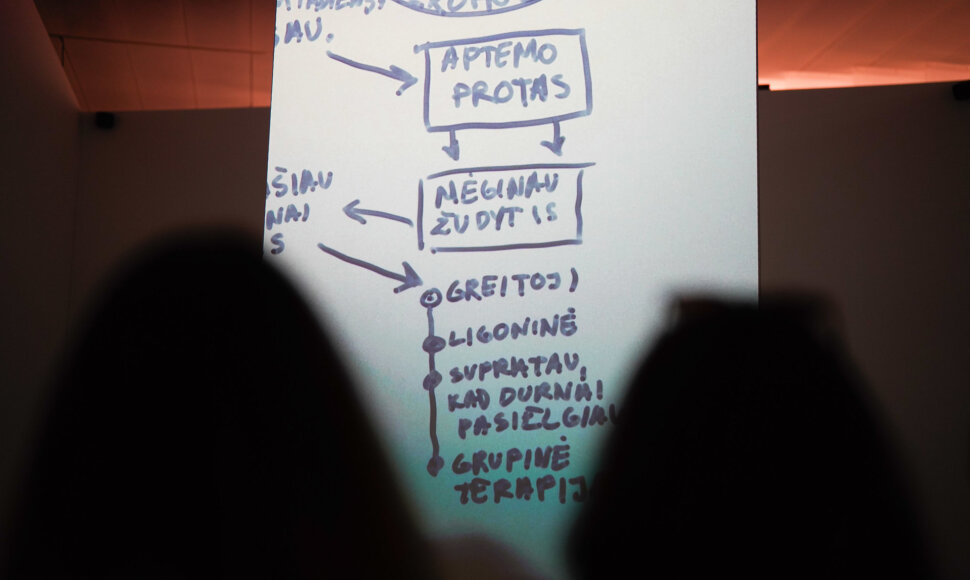 SAU.
APTEMO
PROTAS
MĖGINAU
ŽUDYTIS
ŠIAU
NAI
S
GREITOJI
LIGONINĖ
SUPRATAU,
KAD DURNAI
PASIELGIAU
GRUPINĖ
TERAPIJ